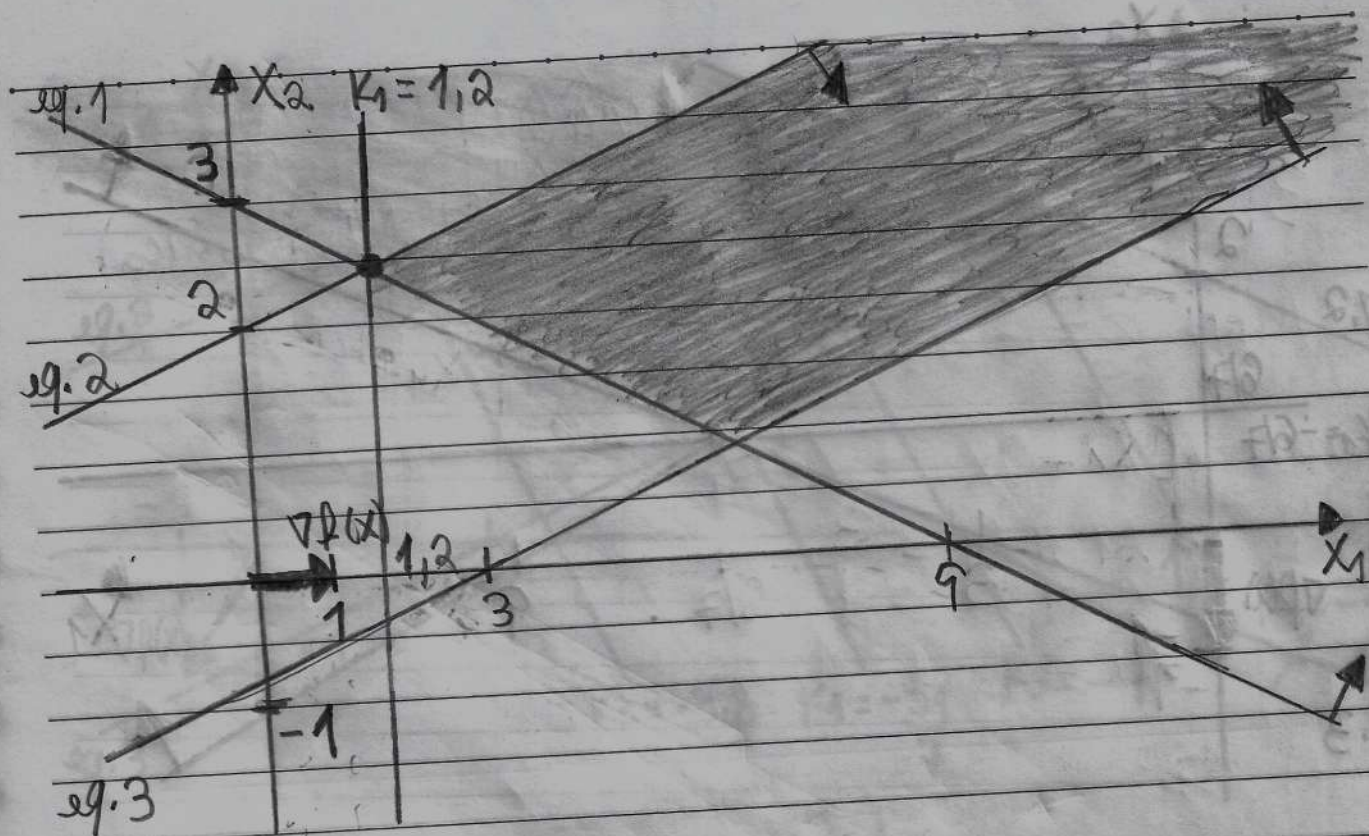 eq.1
X2
K1 = 1,2
3
2
eq.2
∇f(x)
1,2
1
3
9
X1
-1
eq.3